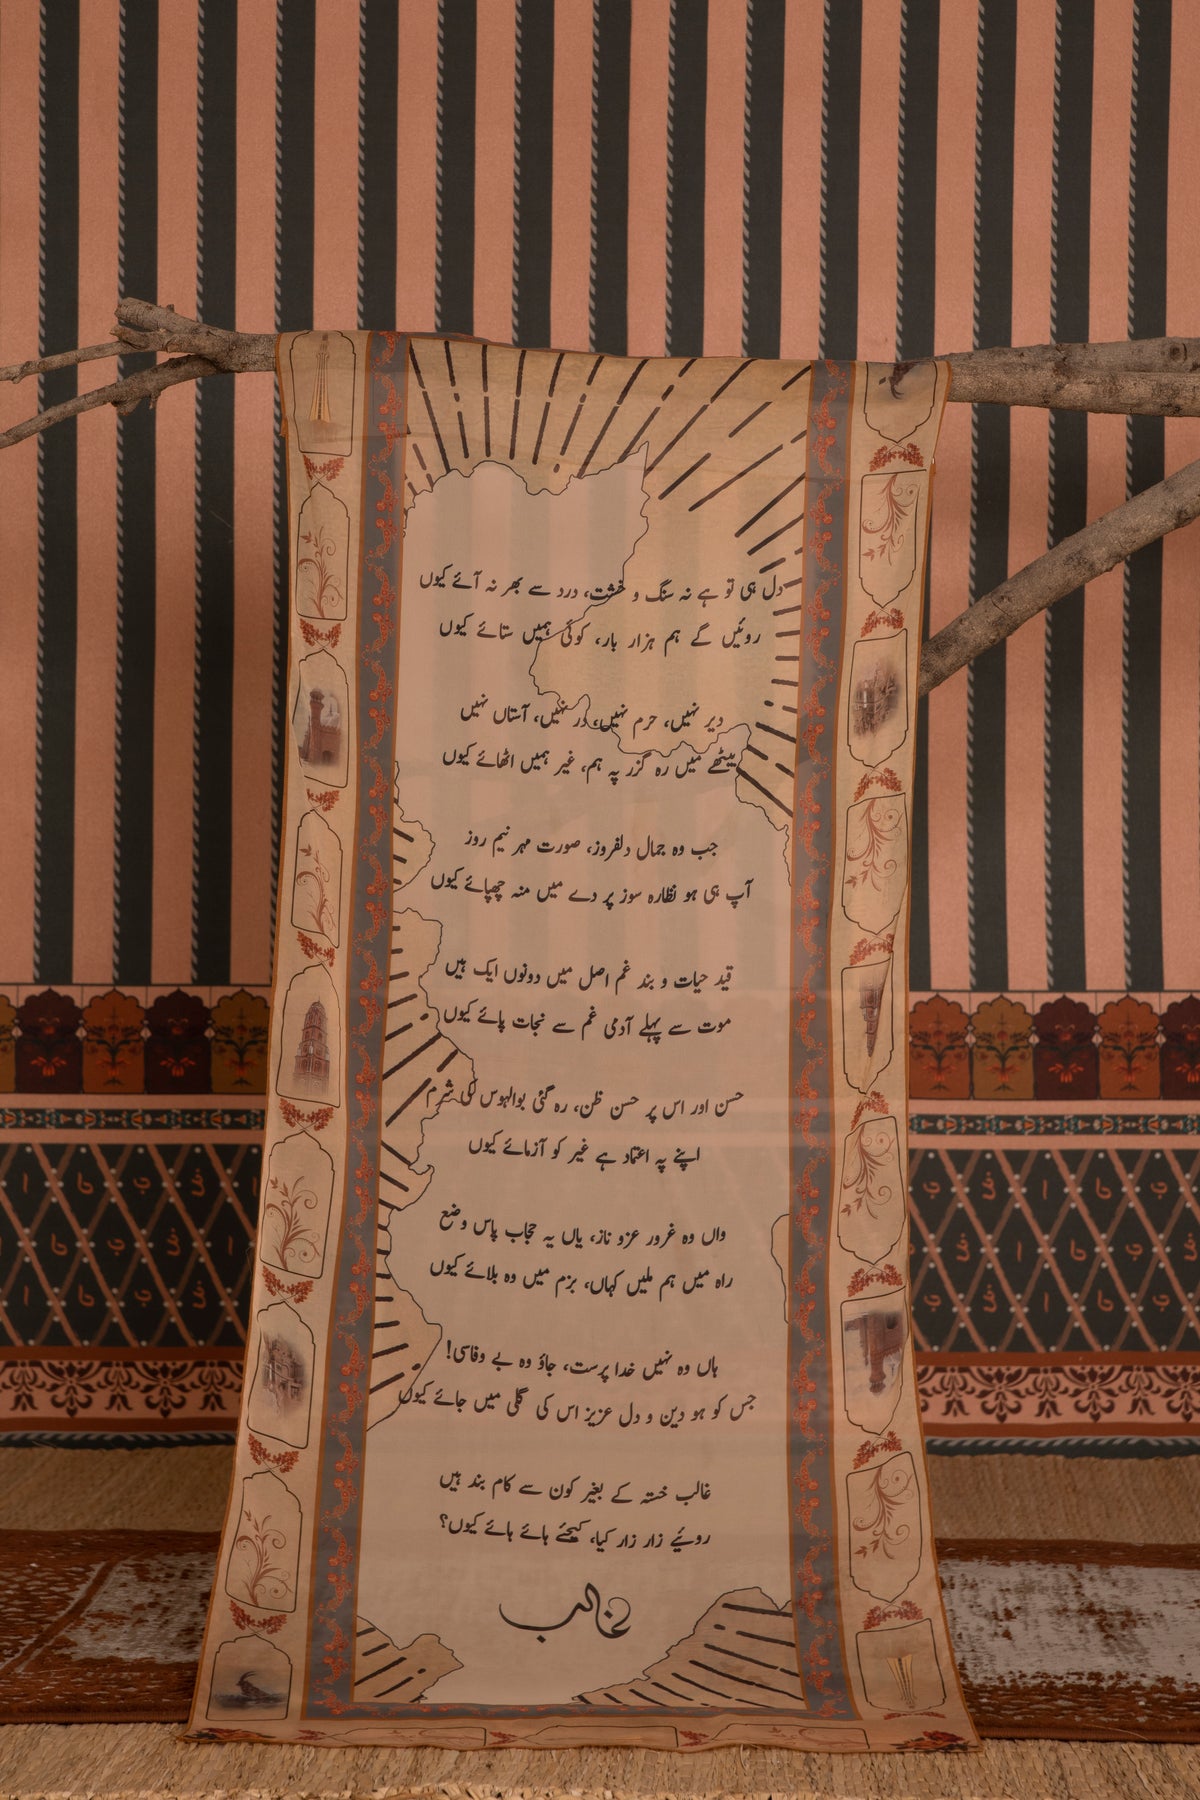 دل ہی تو ہے نہ سنگ و خشت، درد سے بھر نہ آئے کیوں
روئیں گے ہم ہزار بار، کوئی ہمیں ستائے کیوں
دیر نہیں، حرم نہیں، در نہیں، آستاں نہیں
بیٹھے میں رہ گزر پہ ہم، غیر ہمیں اٹھائے کیوں
جب وہ جمال دلفروز، صورت مہر نیم روز
آپ ہی ہو نظارہ سوز پر دے میں منہ چھپائے کیوں
قید حیات و بند غم اصل میں دونوں ایک ہیں
موت سے پہلے آدمی غم سے نجات پائے کیوں
حسن اور اس پر حسن ظن، رہ گئی بوالہوس کی شرم
اپنے پہ اعتماد ہے غیر کو آزمائے کیوں
واں وہ غرور عزو ناز، یاں یہ حجاب پاس وضع
راہ میں ہم ملیں کہاں، بزم میں وہ بلائے کیوں
ہاں وہ نہیں خدا پرست، جاؤ وہ بے وفاسی!
جس کو ہو دین و دل عزیز اس کی گلی میں جائے کیوں
غالب خستہ کے بغیر کون سے کام بند ہیں
روئیے زار زار کیا، کیجئے ہائے ہائے کیوں؟
غالب